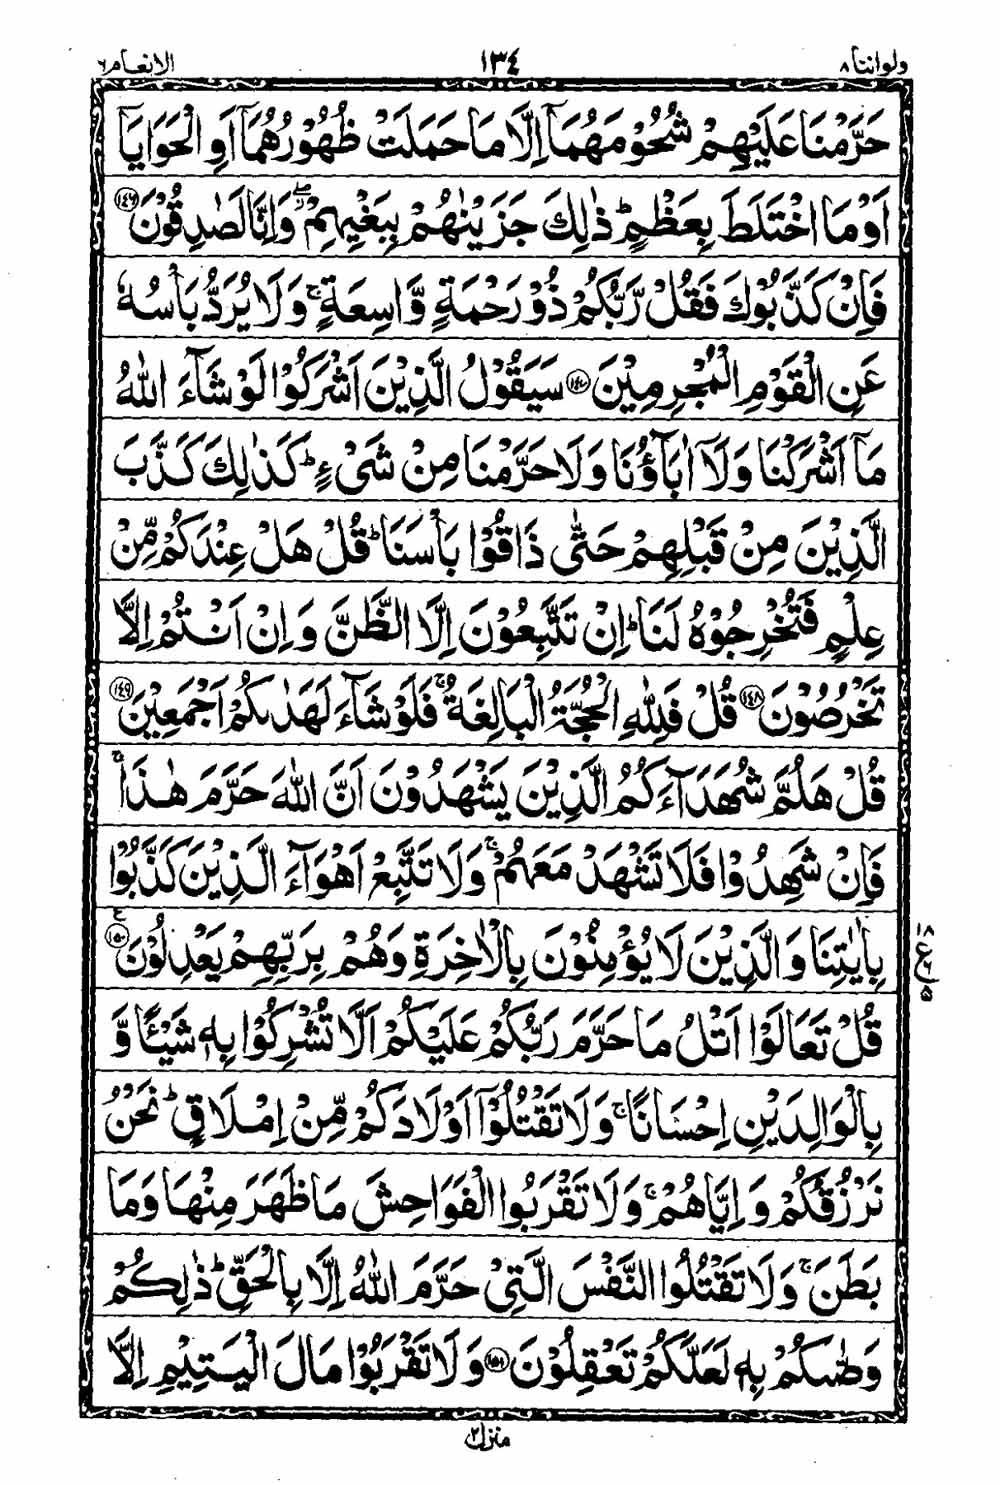 ولواننا ٨ ١٣٤ الانعام ٦
حَرَّمْنَا عَلَيْهِمْ شُحُوْمَهُمَاۤ اِلَّا مَا حَمَلَتْ ظُهُوْرُهُمَاۤ اَوِ الْحَوَايَاۤ
اَوْ مَا اخْتَلَطَ بِعَظْمٍ ؕ ذٰلِكَ جَزَيْنٰهُمْ بِبَغْيِهِمْ ۖ وَاِنَّا لَصٰدِقُوْنَ ﴿١٤٦﴾
فَاِنْ كَذَّبُوْكَ فَقُلْ رَّبُّكُمْ ذُوْ رَحْمَةٍ وَّاسِعَةٍ ۚ وَلَا يُرَدُّ بَاْسُهٗ
عَنِ الْقَوْمِ الْمُجْرِمِيْنَ ﴿١٤٧﴾ سَيَقُوْلُ الَّذِيْنَ اَشْرَكُوْا لَوْ شَآءَ اللّٰهُ
مَاۤ اَشْرَكْنَا وَلَاۤ اٰبَآؤُنَا وَلَا حَرَّمْنَا مِنْ شَىْءٍ ؕ كَذٰلِكَ كَذَّبَ
الَّذِيْنَ مِنْ قَبْلِهِمْ حَتّٰى ذَاقُوْا بَاْسَنَا ؕ قُلْ هَلْ عِنْدَكُمْ مِّنْ
عِلْمٍ فَتُخْرِجُوْهُ لَنَا ؕ اِنْ تَتَّبِعُوْنَ اِلَّا الظَّنَّ وَاِنْ اَنْتُمْ اِلَّا
تَخْرُصُوْنَ ﴿١٤٨﴾ قُلْ فَلِلّٰهِ الْحُجَّةُ الْبَالِغَةُ ۚ فَلَوْ شَآءَ لَهَدٰىكُمْ اَجْمَعِيْنَ ﴿١٤٩﴾
قُلْ هَلُمَّ شُهَدَآءَكُمُ الَّذِيْنَ يَشْهَدُوْنَ اَنَّ اللّٰهَ حَرَّمَ هٰذَا ۚ
فَاِنْ شَهِدُوْا فَلَا تَشْهَدْ مَعَهُمْ ۚ وَلَا تَتَّبِعْ اَهْوَآءَ الَّذِيْنَ كَذَّبُوْا
بِاٰيٰتِنَا وَالَّذِيْنَ لَا يُؤْمِنُوْنَ بِالْاٰخِرَةِ وَهُمْ بِرَبِّهِمْ يَعْدِلُوْنَ ﴿١٥٠﴾ ع
قُلْ تَعَالَوْا اَتْلُ مَا حَرَّمَ رَبُّكُمْ عَلَيْكُمْ اَلَّا تُشْرِكُوْا بِهٖ شَيْـًٔا وَّ
بِالْوَالِدَيْنِ اِحْسَانًا ۚ وَلَا تَقْتُلُوْۤا اَوْلَادَكُمْ مِّنْ اِمْلَاقٍ ؕ نَحْنُ
نَرْزُقُكُمْ وَاِيَّاهُمْ ۚ وَلَا تَقْرَبُوا الْفَوَاحِشَ مَا ظَهَرَ مِنْهَا وَمَا
بَطَنَ ۚ وَلَا تَقْتُلُوا النَّفْسَ الَّتِىْ حَرَّمَ اللّٰهُ اِلَّا بِالْحَقِّ ؕ ذٰلِكُمْ
وَصّٰىكُمْ بِهٖ لَعَلَّكُمْ تَعْقِلُوْنَ ﴿١٥١﴾ وَلَا تَقْرَبُوْا مَالَ الْيَتِيْمِ اِلَّا
منزل ٢